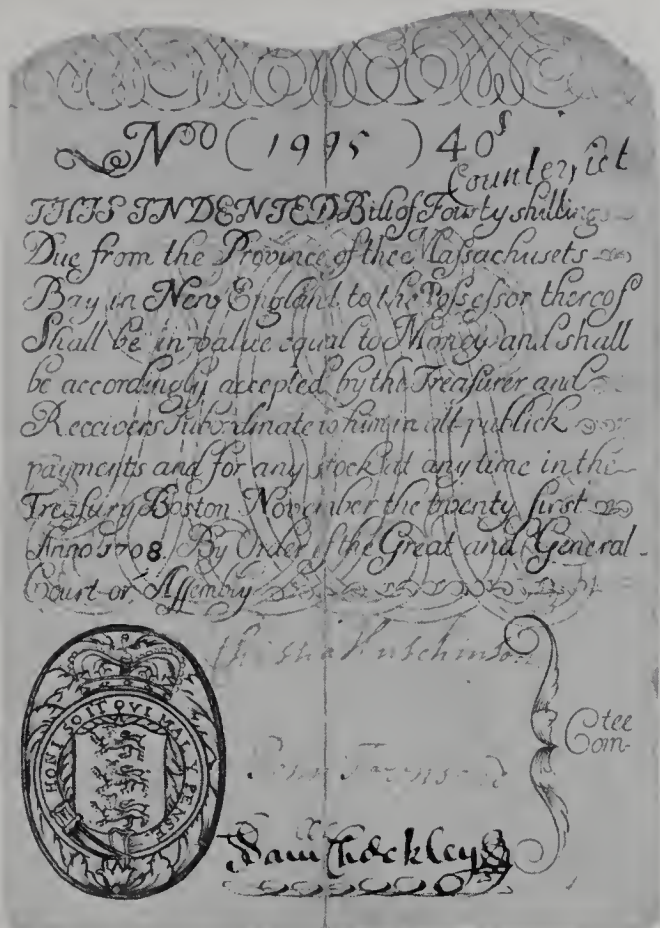 Noo ( 1995 ) 40s
Counterfict
THIS INDENTED Bill of Fourty shillings
Due from the Province of the Massachusets
Bay in New England to the Possessor thereof
Shall be in value equal to Money and shall
be accordingly accepted by the Treasurer and
Receivers Subordinate to him in all publick
payments and for any stock at any time in the
Treasury Boston November the twenty first
Anno 1708 By Order of the Great and General
Court or Assembly
Elisha Hutchinson
HONI SOIT QVI MAL Y PENSE
Com-tee
Penn Townsend
Sam Checkley